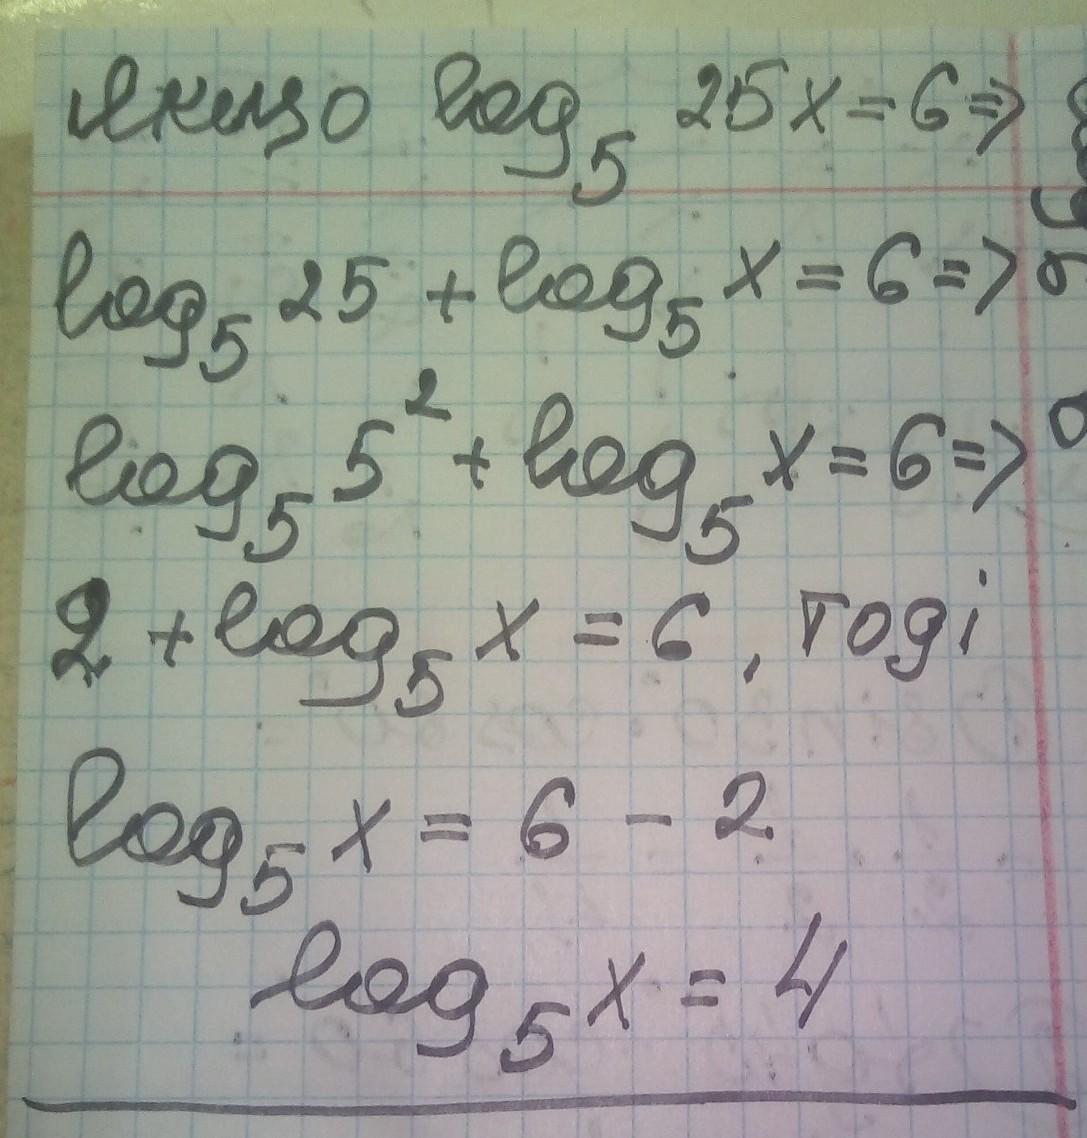 Якщо log₅ 25x = 6 =>
log₅ 25 + log₅ x = 6 =>
log₅ 5² + log₅ x = 6 =>
2 + log₅ x = 6, тоді
log₅ x = 6 - 2
log₅ x = 4